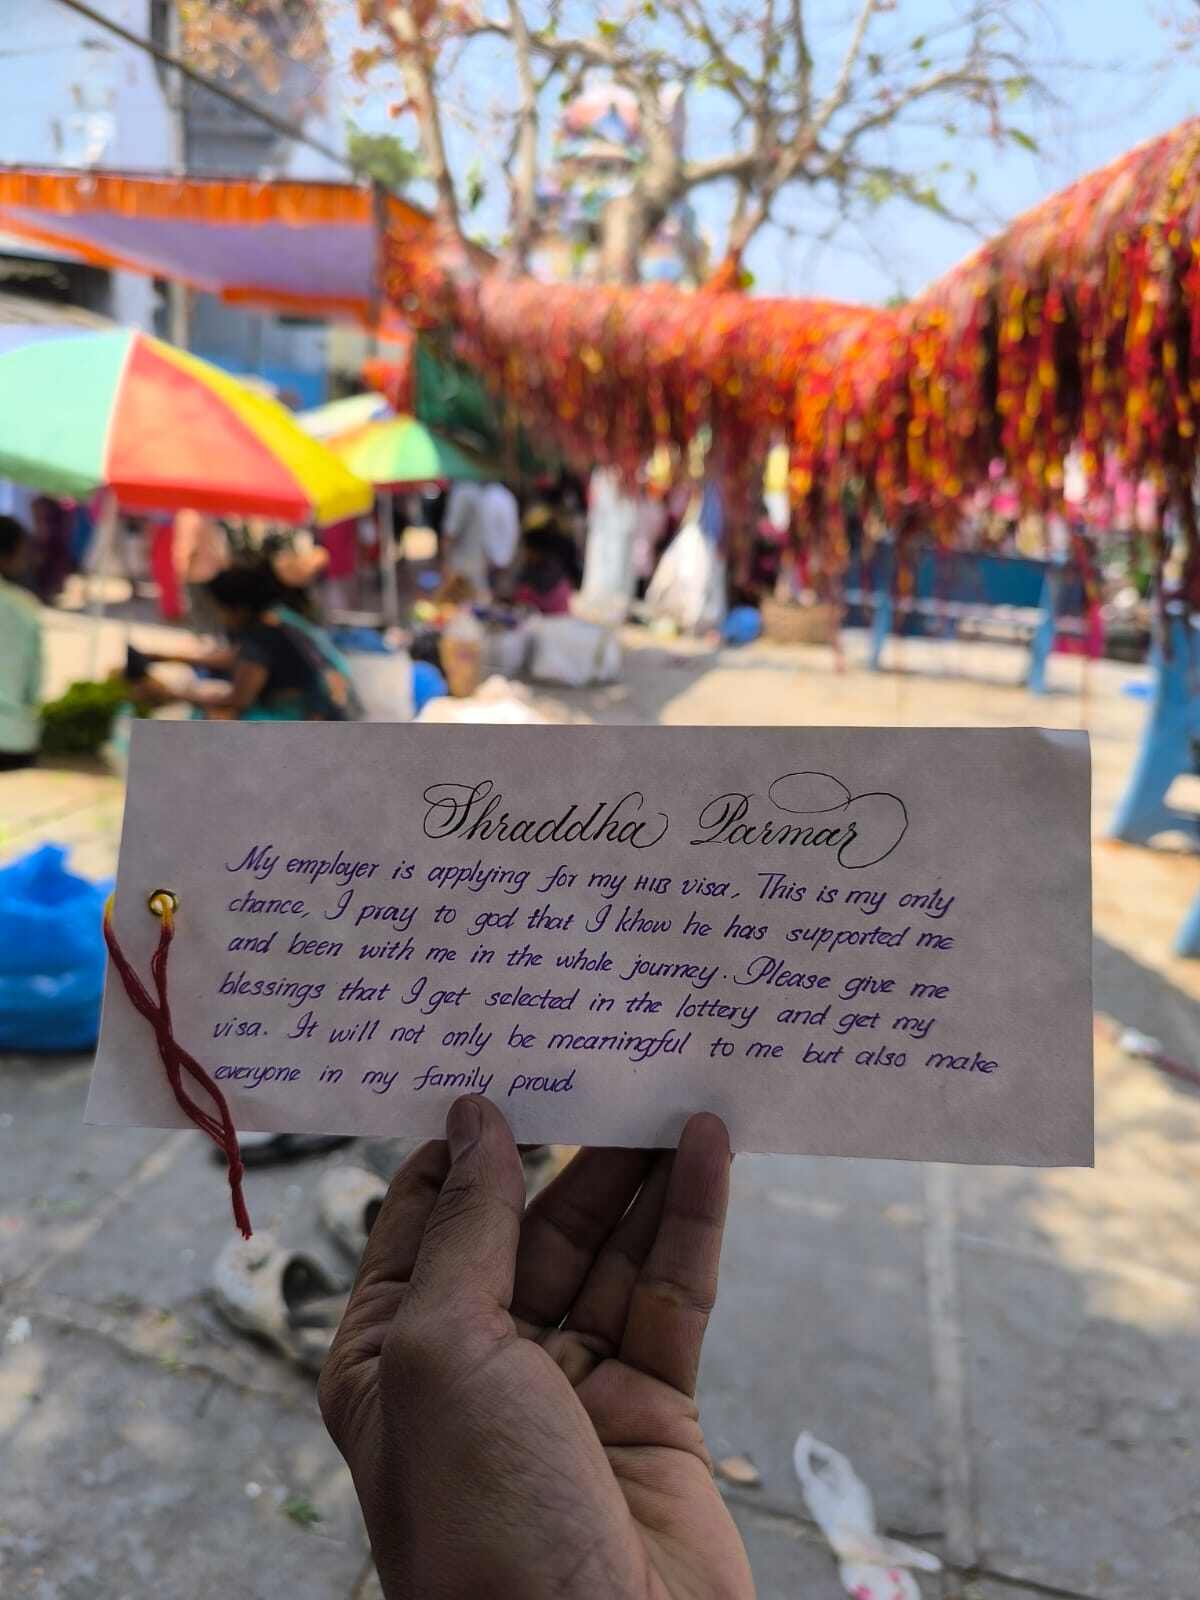 Shraddha Parmar
My employer is applying for my H1B visa, This is my only
chance, I pray to god that I know he has supported me
and been with me in the whole journey. Please give me
blessings that I get selected in the lottery and get my
visa. It will not only be meaningful to me but also make
everyone in my family proud